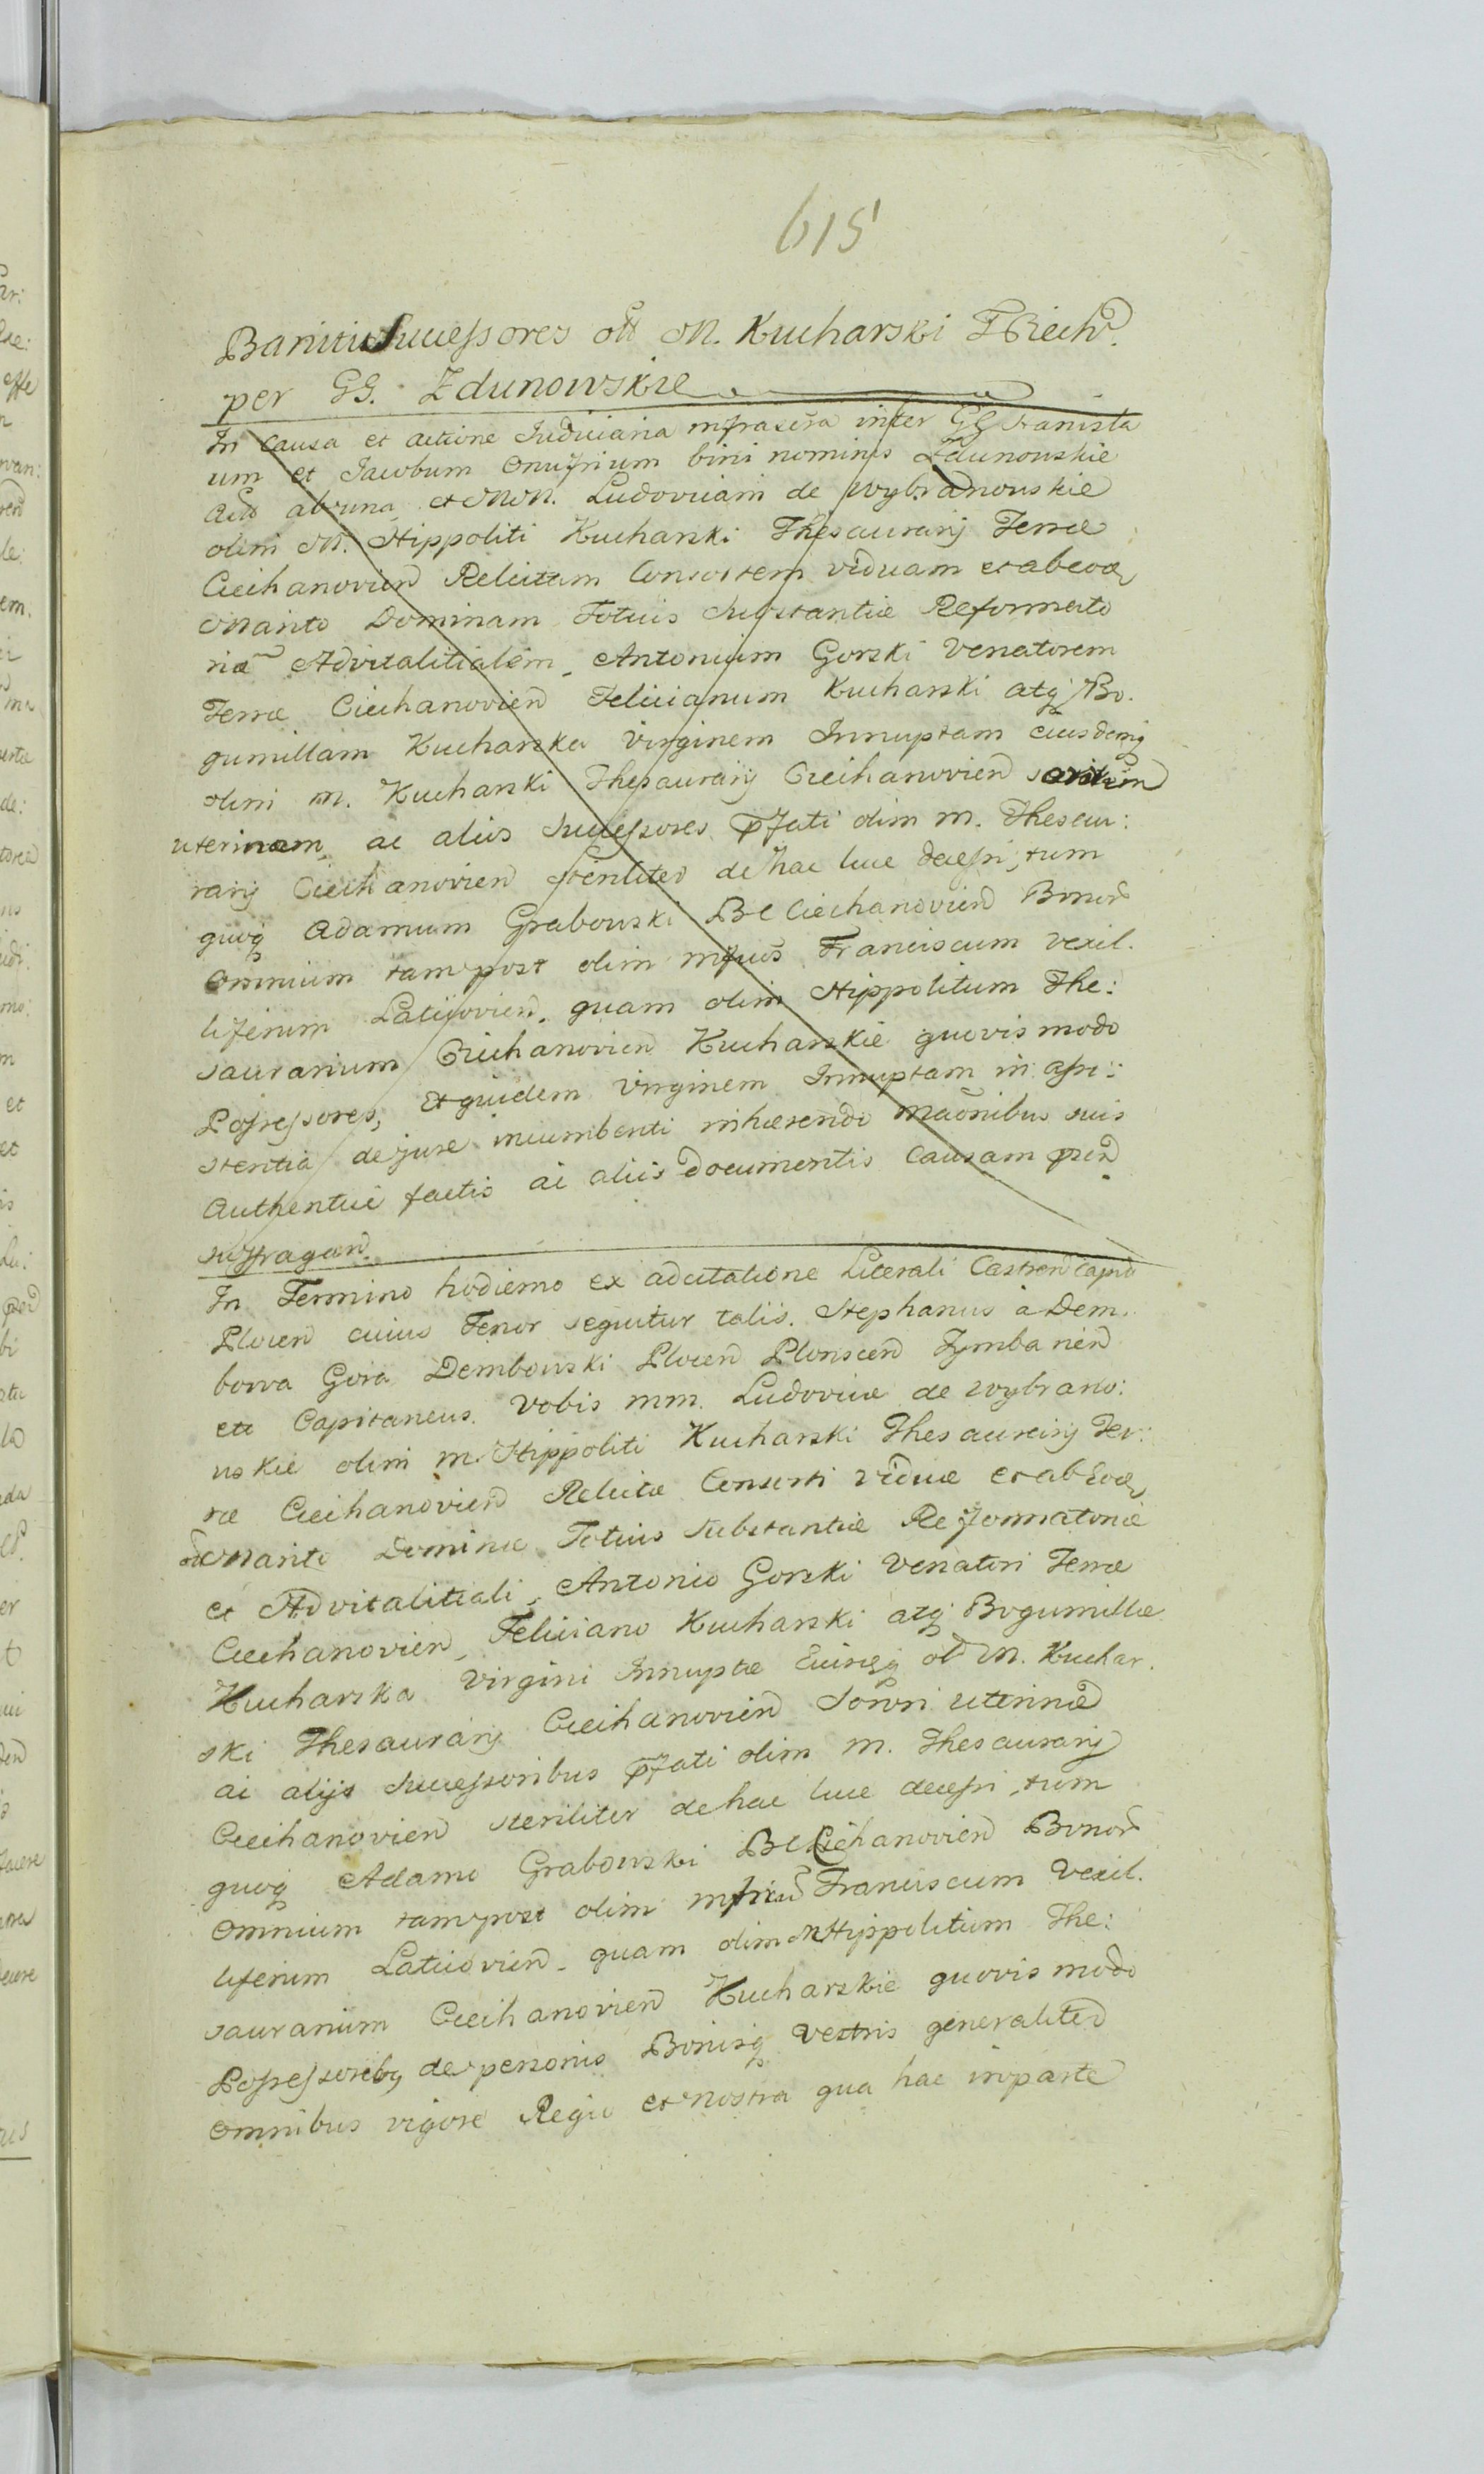 615
Baniti Successores olł M. Kucharski TCiechń.
per GG. Zdunowskie
In causa et actione Judiciaria infrascra inter GG Stanisła
um et Jacobum Onufrium bini nominis Zdunowskie
Actt ab una, et MM. Ludovicam de Wybranowskie
olim M. Hippoliti Kucharski Thesaurarij Terræ
Ciechanovien Relictam Consortem viduam et ab eođ
Marito Dominam Totius Substantiæ Reformato
riæ Advitalitialem, Antonium Gorski Venatorem
Terræ Ciechanovien Felicianum Kucharski atq Bo.
gumillam Kucharska Virginem Innuptam eiusdemq
olim M. Kucharski Thesaurarij Ciechanovien sororem
uterinam, ac alios Successores pfati olim M. Thesau:
rarij Ciechanovien steriliter de hac luce decessi, tum
quoq Adamum Grabowski BC Ciechanovien Bonor
omnium tam post olim mfcus Franciscum vexil.
liferum Laticovien, quam olim Hippolitum The:
saurarium Ciechanovien Kucharskie quovis modo
Possessores, Et quidem Virginem Innuptam in assi:
stentia de jure incumbenti inhærendo maonibus suis
Authentice factis ac aliis documentis Causam pnd
suffragan
In Termino hodierno ex adcitatione Literali Castren Capit
Plocen cuius Tenor sequitur talis. Stephanus à Dem.
bowa Gora Dembowski Plocen Plonscen Zymbanen
etc Capitaneus. Vobis MM. Ludovicæ de Wybrano:
wskie olim M. Hippoliti Kucharski Thesaurarij Ter:
ræ Ciechanovien Relictæ Consorti viduæ et ab Eođ
Marito Dominæ Totius Substantiæ Reformatoriæ
et Advitalitiali, Antonio Gorski Venatori Terræ
Ciechanovien, Feliciano Kucharski atq Bogumillæ
Kucharska Virgini Innuptæ Eiusq ol M. Kuchar.
ski Thesaurarij Ciechanovien Sorori uterinæ
ac alijs Successoribus pfati olim M. Thesaurarij
Ciechanovien steriliter de hac luce decessi, tum
quoq Adamo Grabowski BC Ciechanovien Bonor
omnium tam post olim Franciscum Vexil.
liferum Laticovien, quam olim M Hippolitum The:
saurarium Ciechanovien Kucharskie quovis modo
Possessoribq, de personis Bonisq Vestris generaliter
omnibus vigore Regia et nostra qua hac in parte